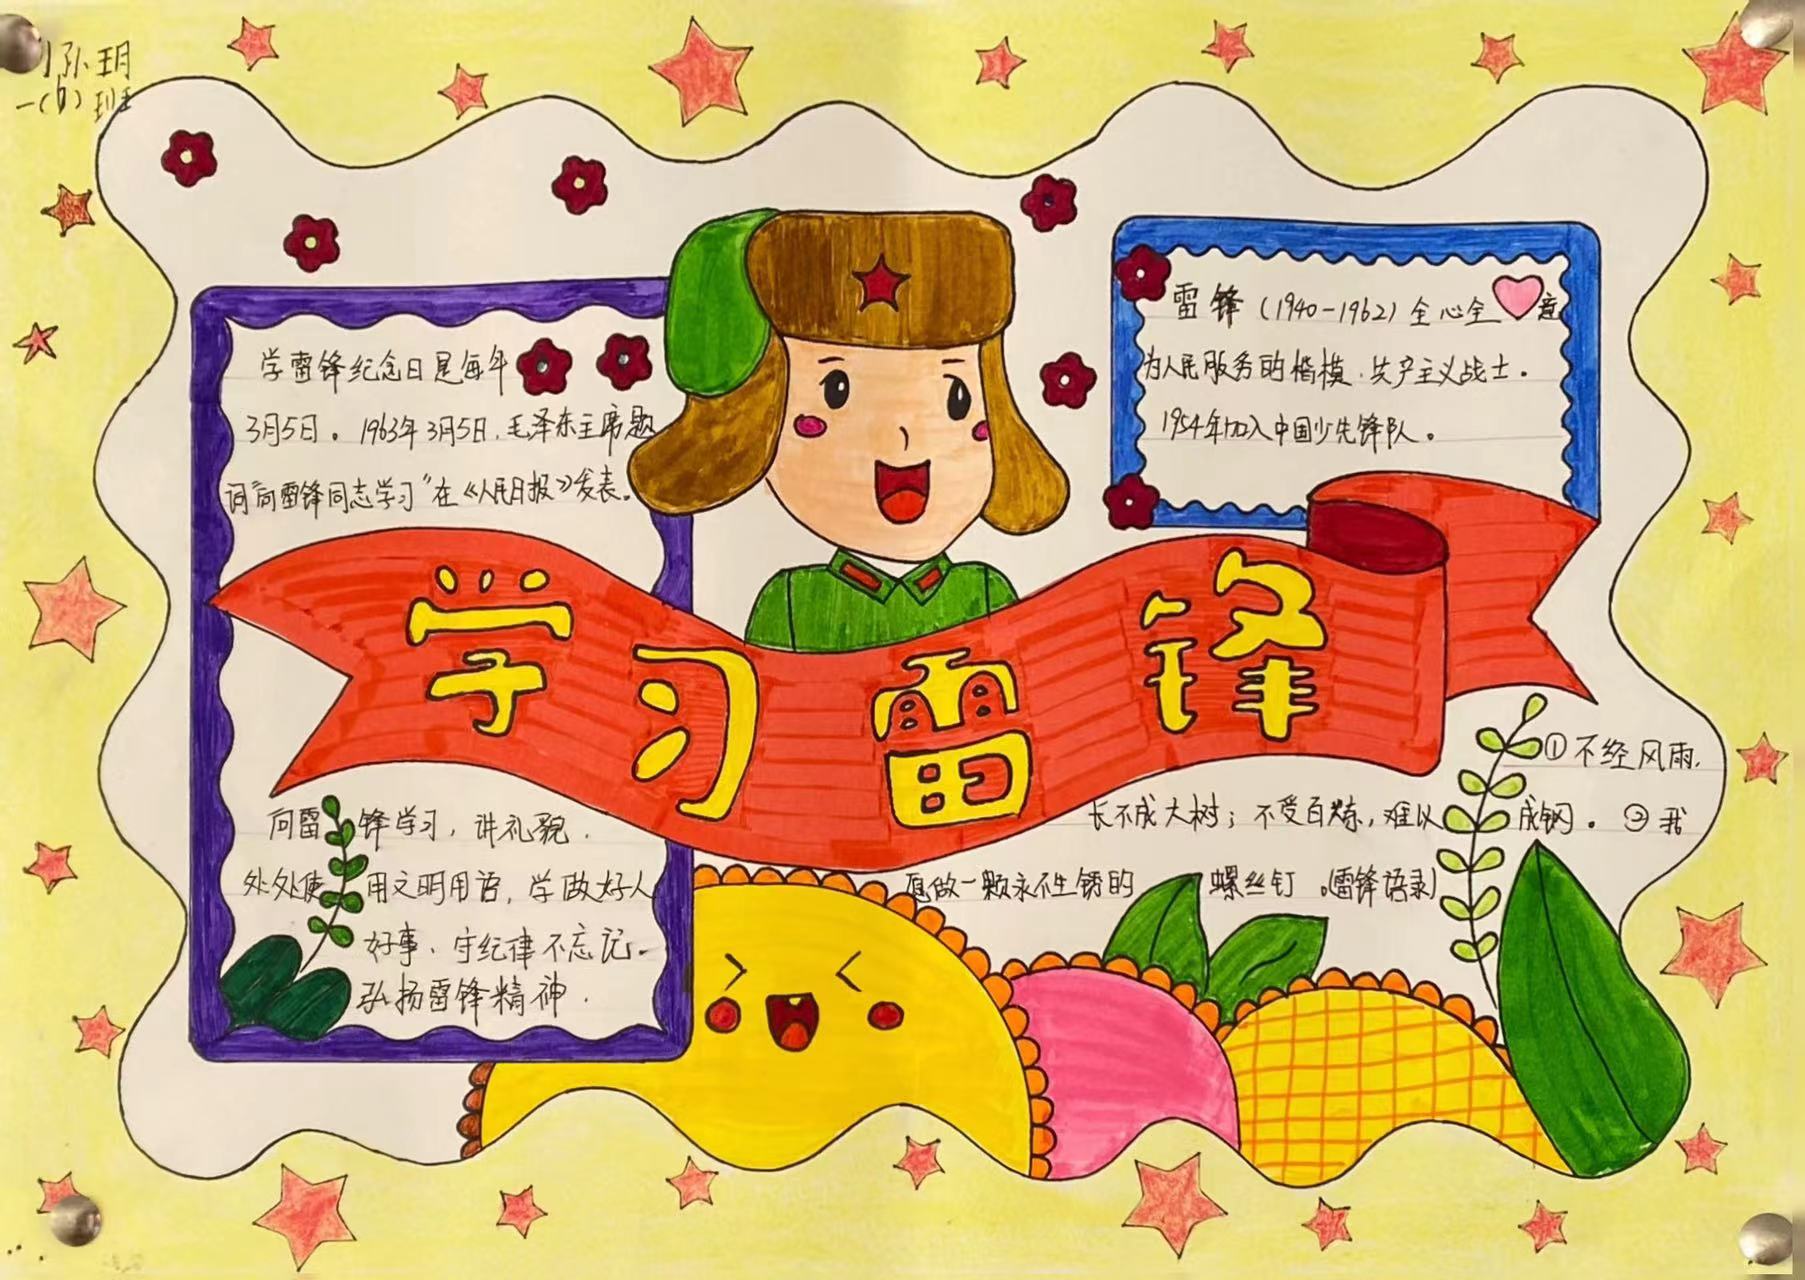 弘玥
一(6)班
学雷锋纪念日是每年
3月5日。1963年3月5日,毛泽东主席题
词"向雷锋同志学习"在《人民日报》发表。
雷锋(1940-1962)全心全意
为人民服务的楷模.共产主义战士。
1954年加入中国少先锋队。
学习雷锋
向雷锋学习,讲礼貌.
处处使用文明用语,学做好人
好事、守纪律不忘记.
弘扬雷锋精神.
①不经风雨,
长不成大树;不受百炼,难以成钢。②我
愿做一颗永不生锈的螺丝钉。(雷锋语录)